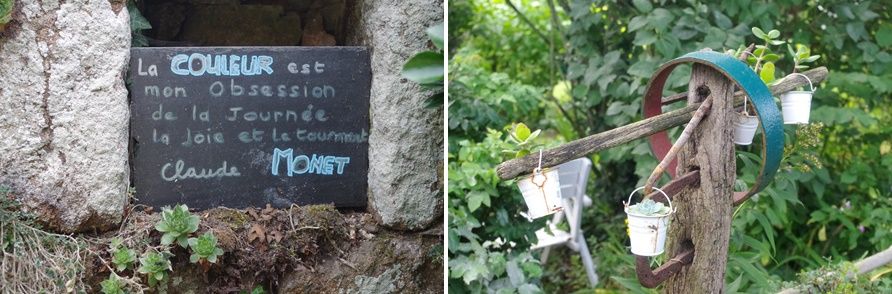 La COULEUR est
mon Obsession
de la Journée
la Joie et le tourment
Claude MONET